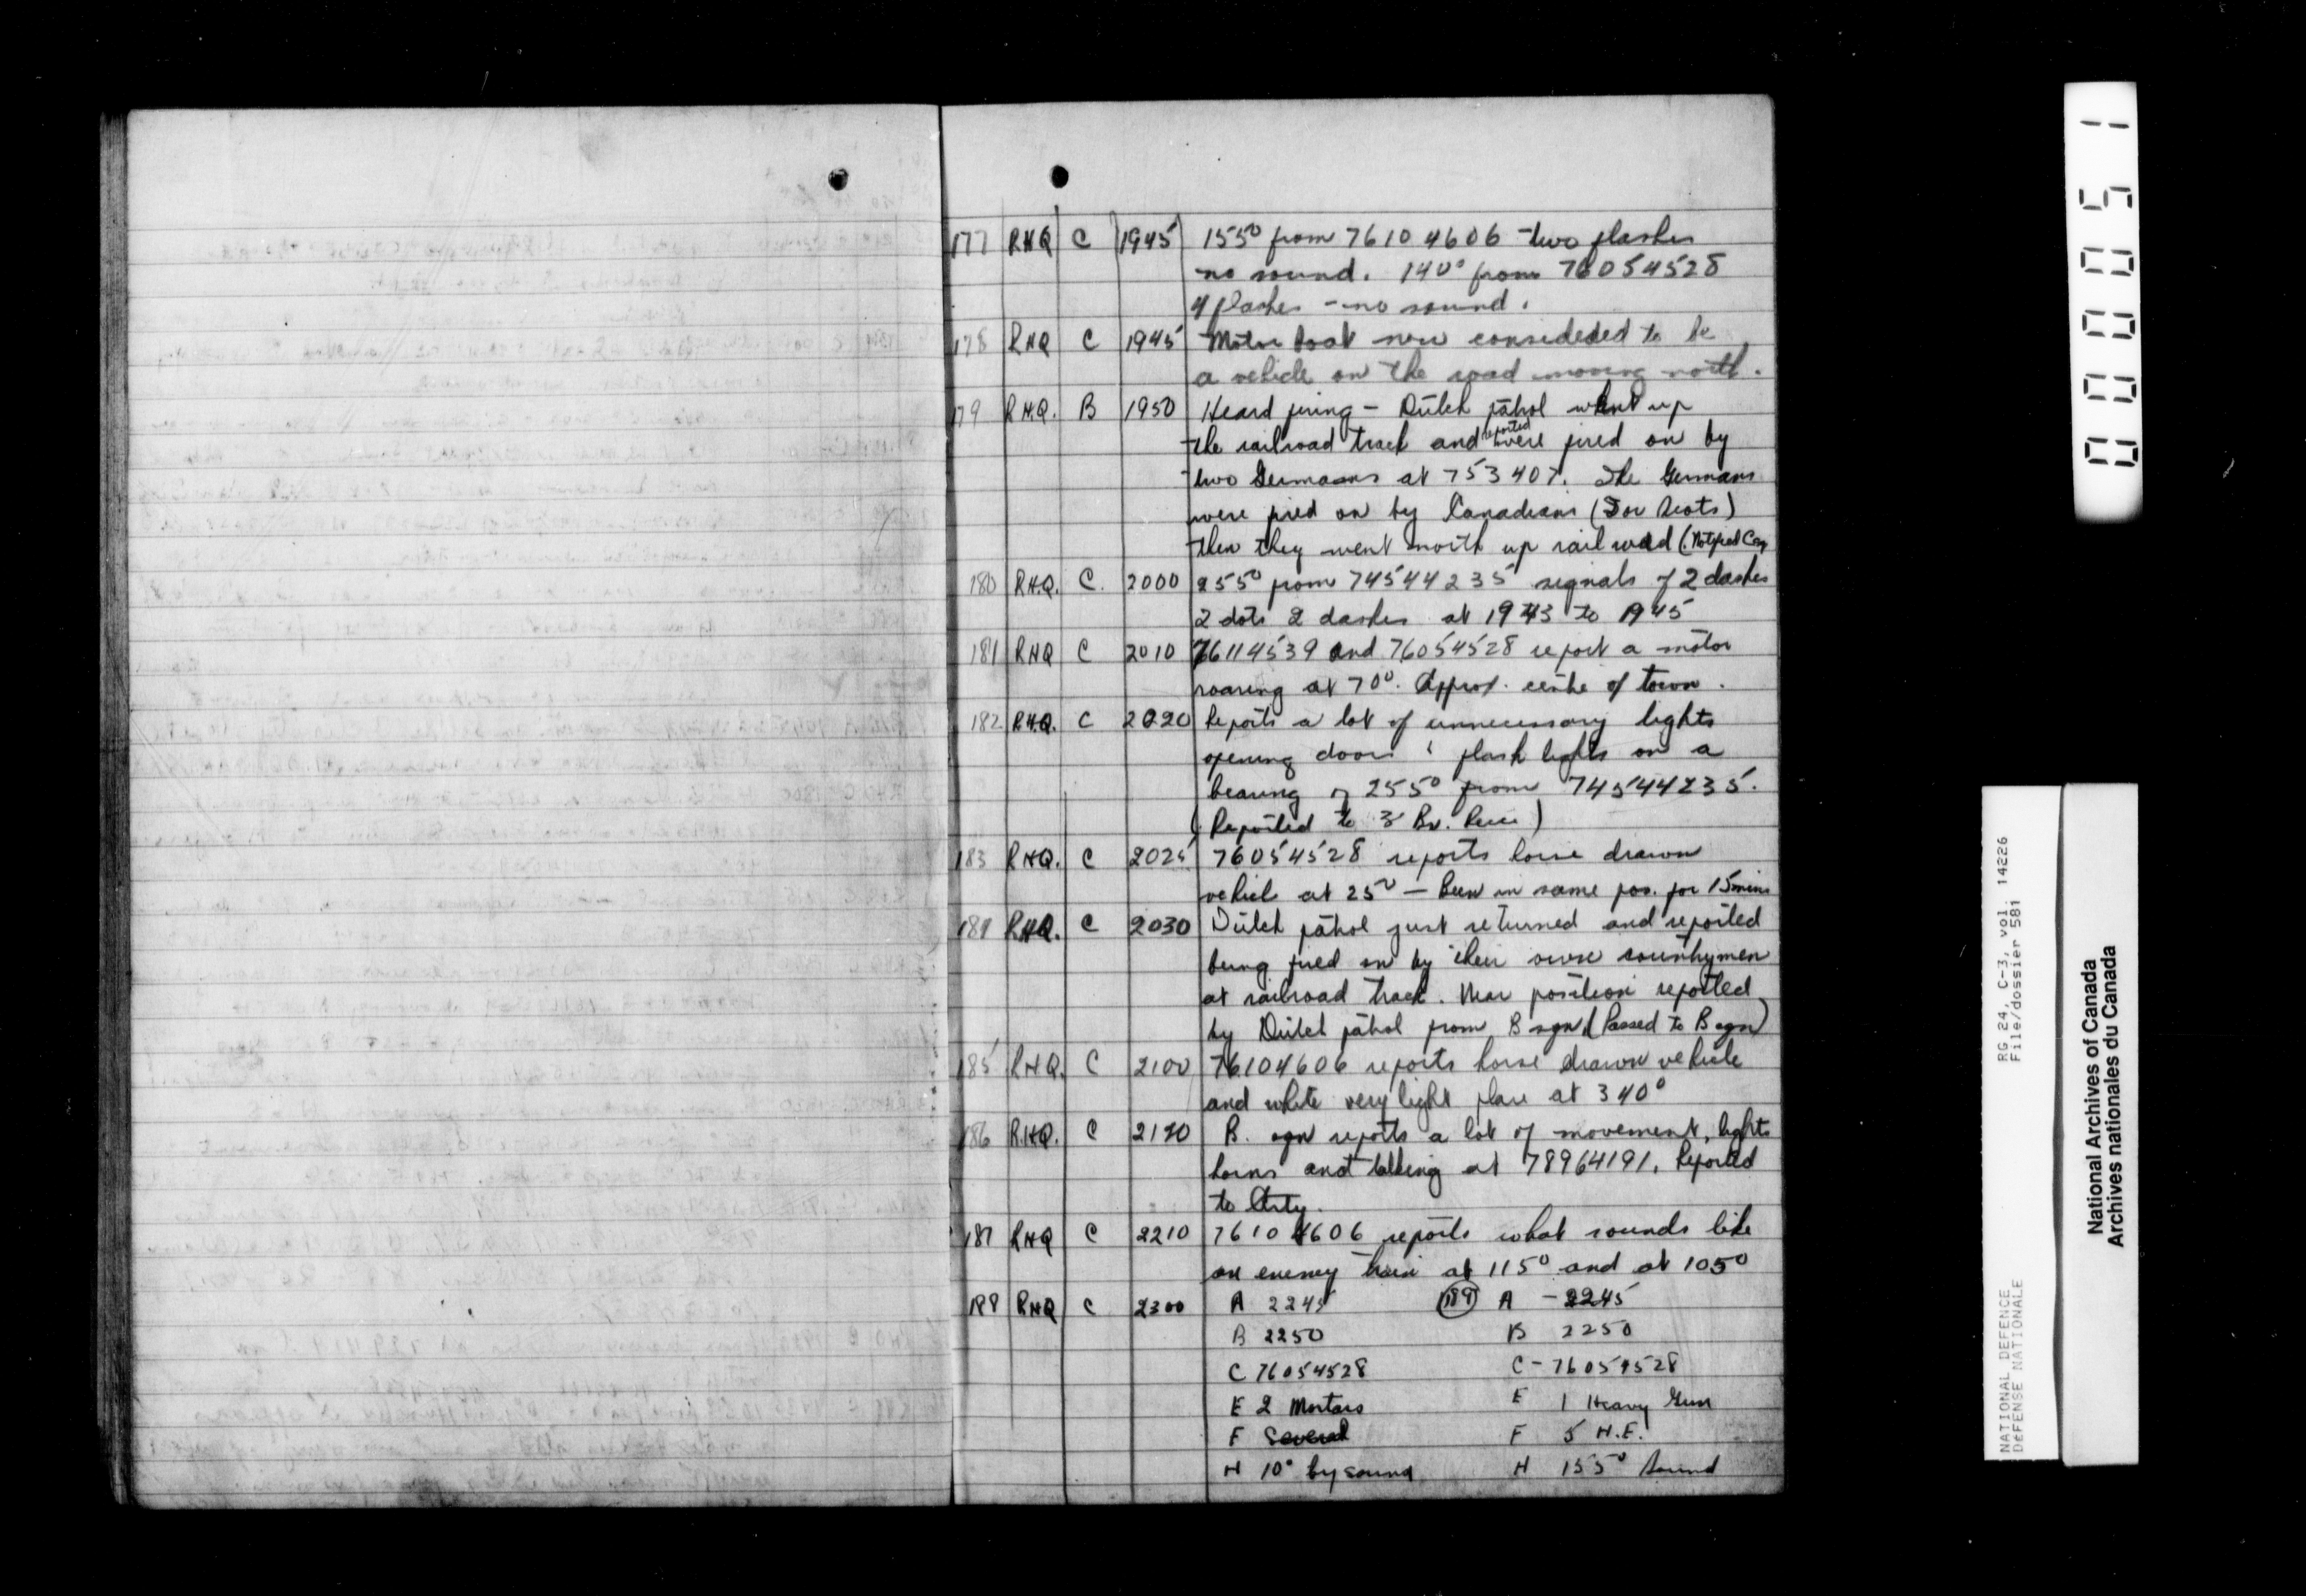 177 RHQ C 1945 155° from 7610 4606 two flashes
no sound. 140° from 76054528
4 flashes - no sound.
178 RHQ C 1945 Motor boat now consideded to be
a vehicle on the road moving north.
179 R.H.Q. B 1950 Heard firing - Dutch patrol went up
the railroad track and reported were fired on by
two Germans at 753407. The Germans
were fired on by Canadians (Tor Scots)
then they went north up railroad (Notified
180 R.H.Q. C. 2000 255° from 74544235 signals of 2 dashes
2 dots 2 dashes at 1943 to 1945
181 RHQ C 2010 76114539 and 76054528 report a motor
roaring at 70°. Approx. centre of town.
182 R.H.Q. C 2020 Reports a lot of unnecessary lights
opening doors & flash lights on a
bearing of 255° from 74544235.
(Reported to 3 Br. Recce)
183 RHQ. C 2025 76054528 reports horse drawn
vehicle at 25° — been in same pos. for 15 mins
184 RHQ. C 2030 Dutch patrol just returned and reported
being fired on by their own countrymen
at railroad track. Near position reported
by Dutch patrol from B sqn (Passed to B sqn)
185 RHQ. C 2100 76104606 reports horse drawn vehicle
and white very light flare at 340°
186 R.H.Q. C 2120 B. sqn reports a lot of movement, lights
horns and talking at 78964191. Reported
to Arty.
187 RHQ C 2210 7610 4606 reports what sounds like
an enemy train at 115° and at 105°
188 RHQ C 2300 A 2245 (189) A - 2245
B 2250 B 2250
C 76054528 C - 76054528
E 2 Mortars E 1 Heavy Gun
F Several F 5 H.E.
H 10° by sound H 155° Sound
0000051
RG 24, C-3, vol. 14226
File/dossier 581
NATIONAL DEFENCE
DÉFENSE NATIONALE
National Archives of Canada
Archives nationales du Canada